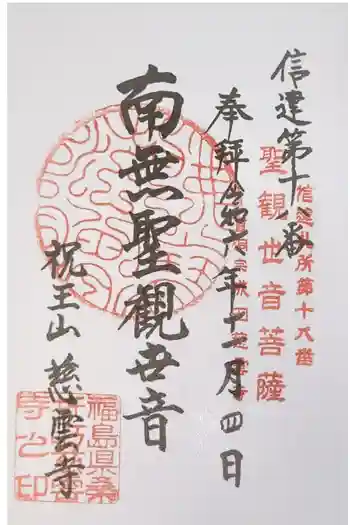 信達第十八番
聖観世音菩薩
信達三十三所第十八番
奉拝 令和六年十一月四日
南無聖観世音
祝王山 慈雲寺
福島県桑
寺之印